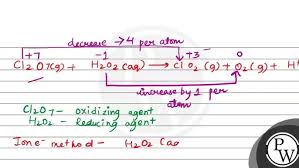 decrease → 4 per atom
+7 -1 +3 0
Cl2O7(g) + H2O2(aq) → ClO2(g) + O2(g) + H
increase by 1 per
atom
Cl2O7 - oxidizing agent
H2O2 - Reducing agent
Ion e⁻ method - H2O2 (aq
PW